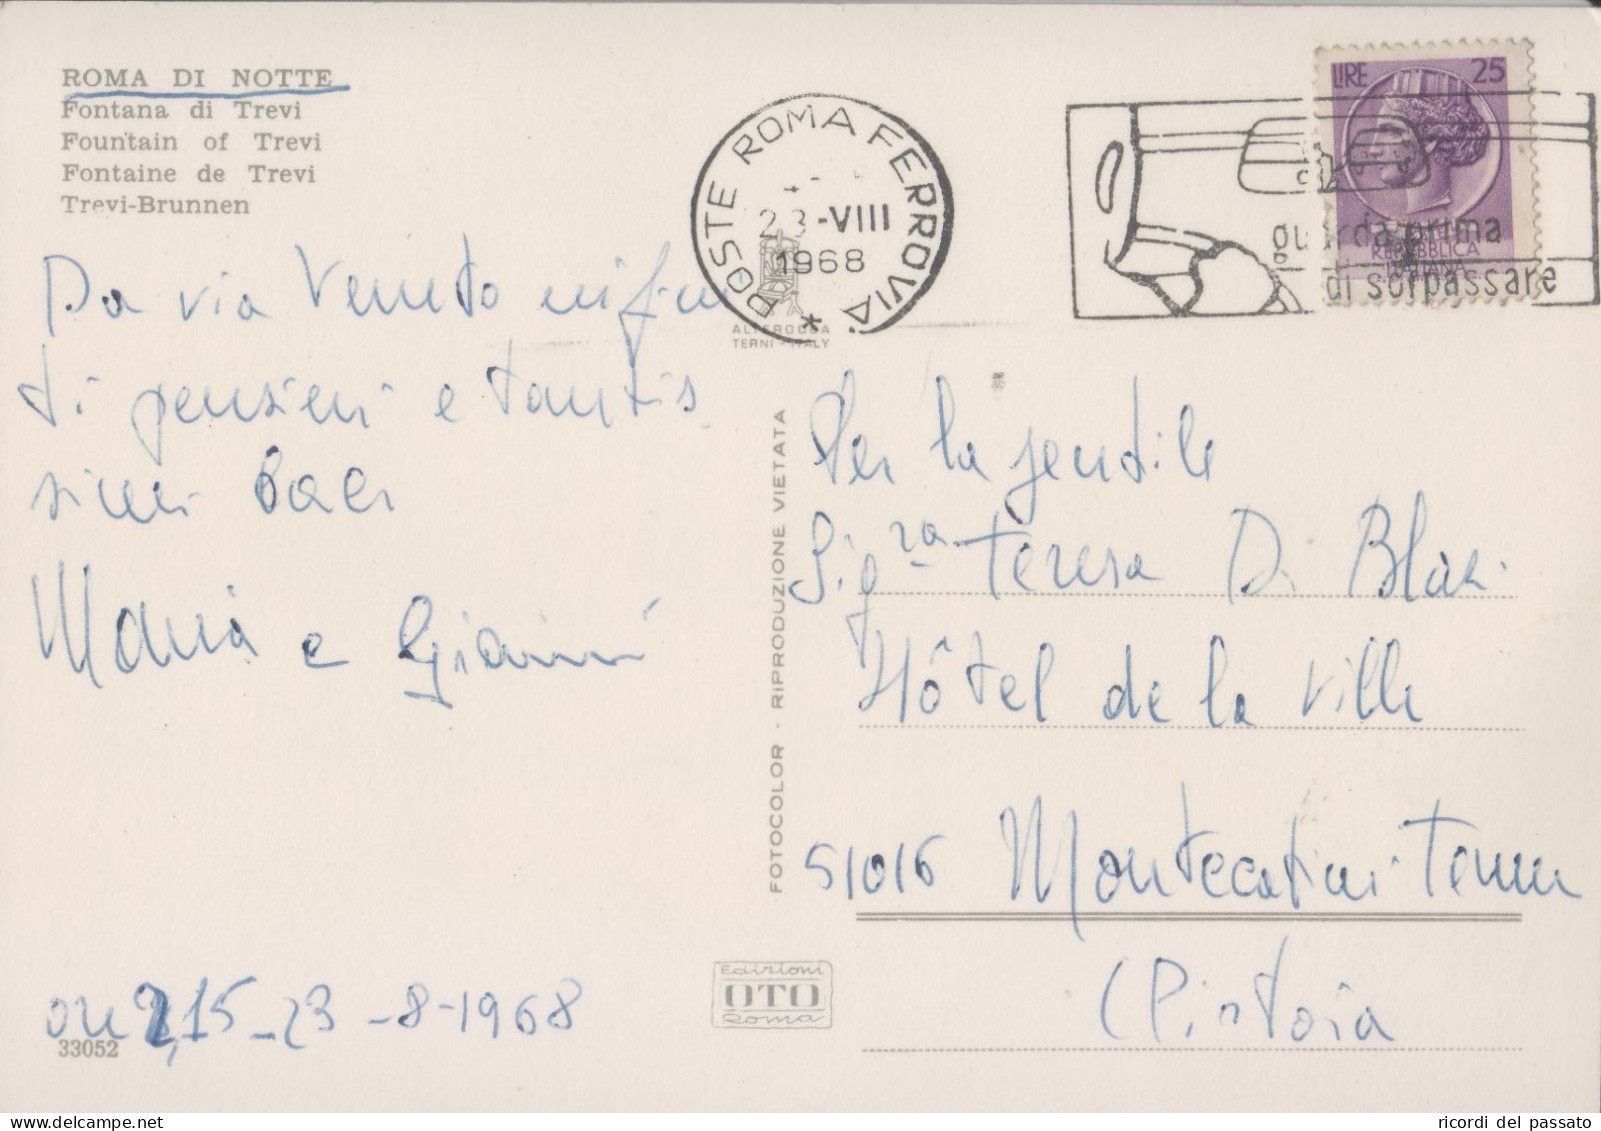 ROMA DI NOTTE
Fontana di Trevi
Fountain of Trevi
Fontaine de Trevi
Trevi-Brunnen
POSTE ROMA FERROVIA
23-VIII
1968
*
LIRE 25
REPUBBLICA
ITALIANA
guarda prima
di sorpassare
ALTEROCCA
TERNI - ITALY
Da via Veneto
ti pensieri e tantis
simi baci
Maria e Gianni
ore 2,15 - 23 - 8 - 1968
33052
FOTOCOLOR - RIPRODUZIONE VIETATA
Edizioni
OTO
Roma
Per la gentile
Sig.ra Teresa Di Blasi
Hôtel de la Ville
51016 Montecatini Terme
(Pistoia
ricordi del passato